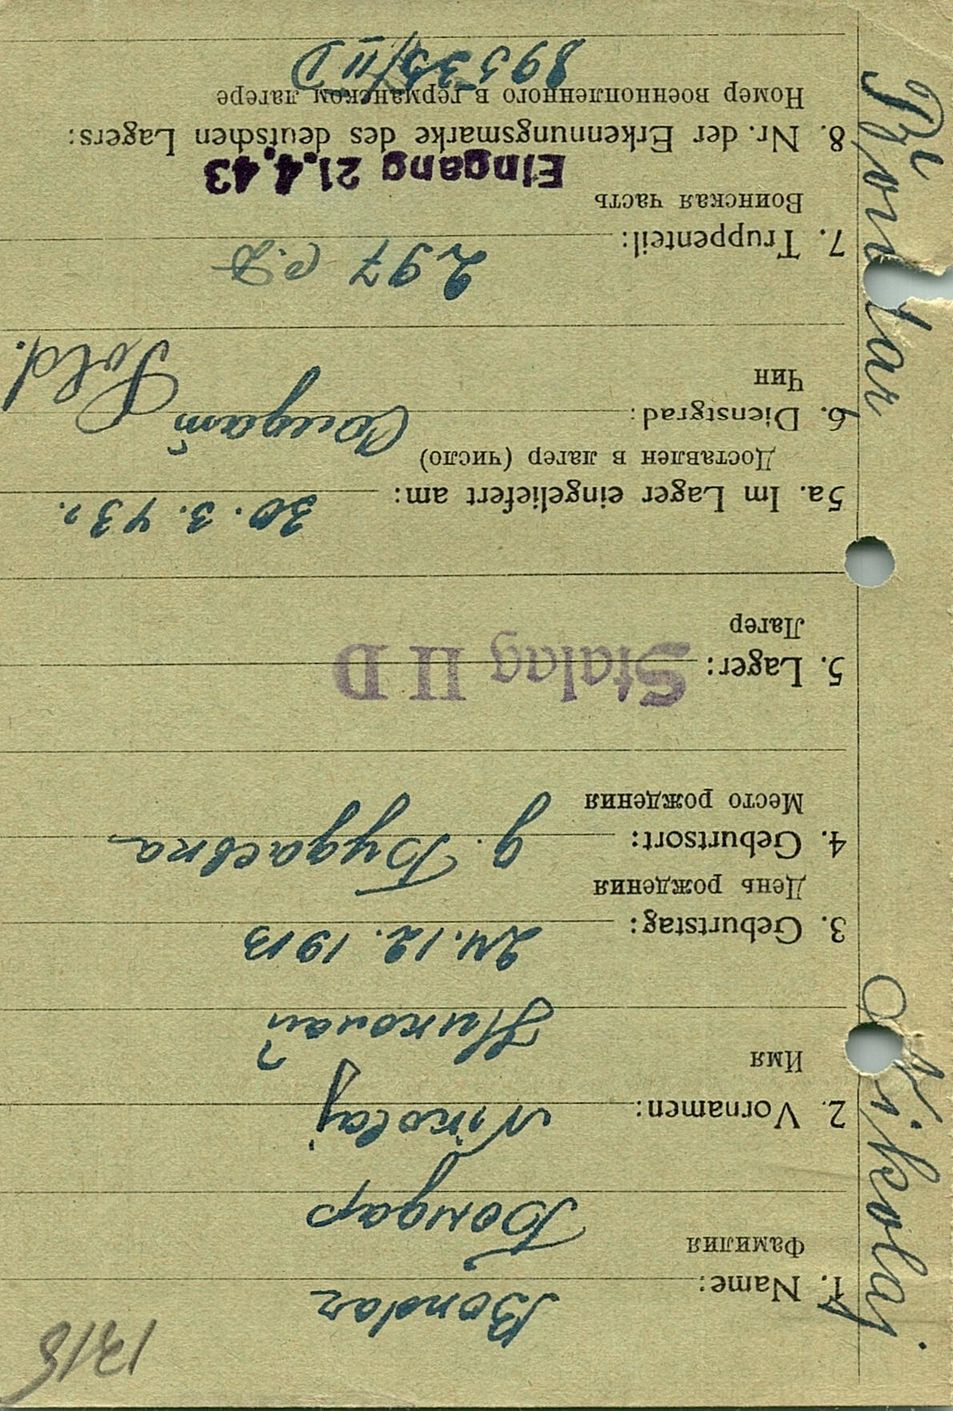 Bondar Nikolaj
1. Name: Bondar
Фамилия
Бондар
2. Vornamen: Nikolaj
Имя
Николай
3. Geburtstag: 24.12.1913
День рождения
4. Geburtsort: д. Будаевка
Место рождения
5. Lager: Stalag II D
Лагер
5a. Im Lager eingeliefert am: 30.3.43г.
Доставлен в лагер (число)
6. Dienstgrad: Солдат Sold.
Чин
7. Truppenteil: 297 с.д
Воинская часть
Eingang 21.4.43
8. Nr. der Erkennungsmarke des deutschen Lagers:
Номер военнопленного в германском лагере